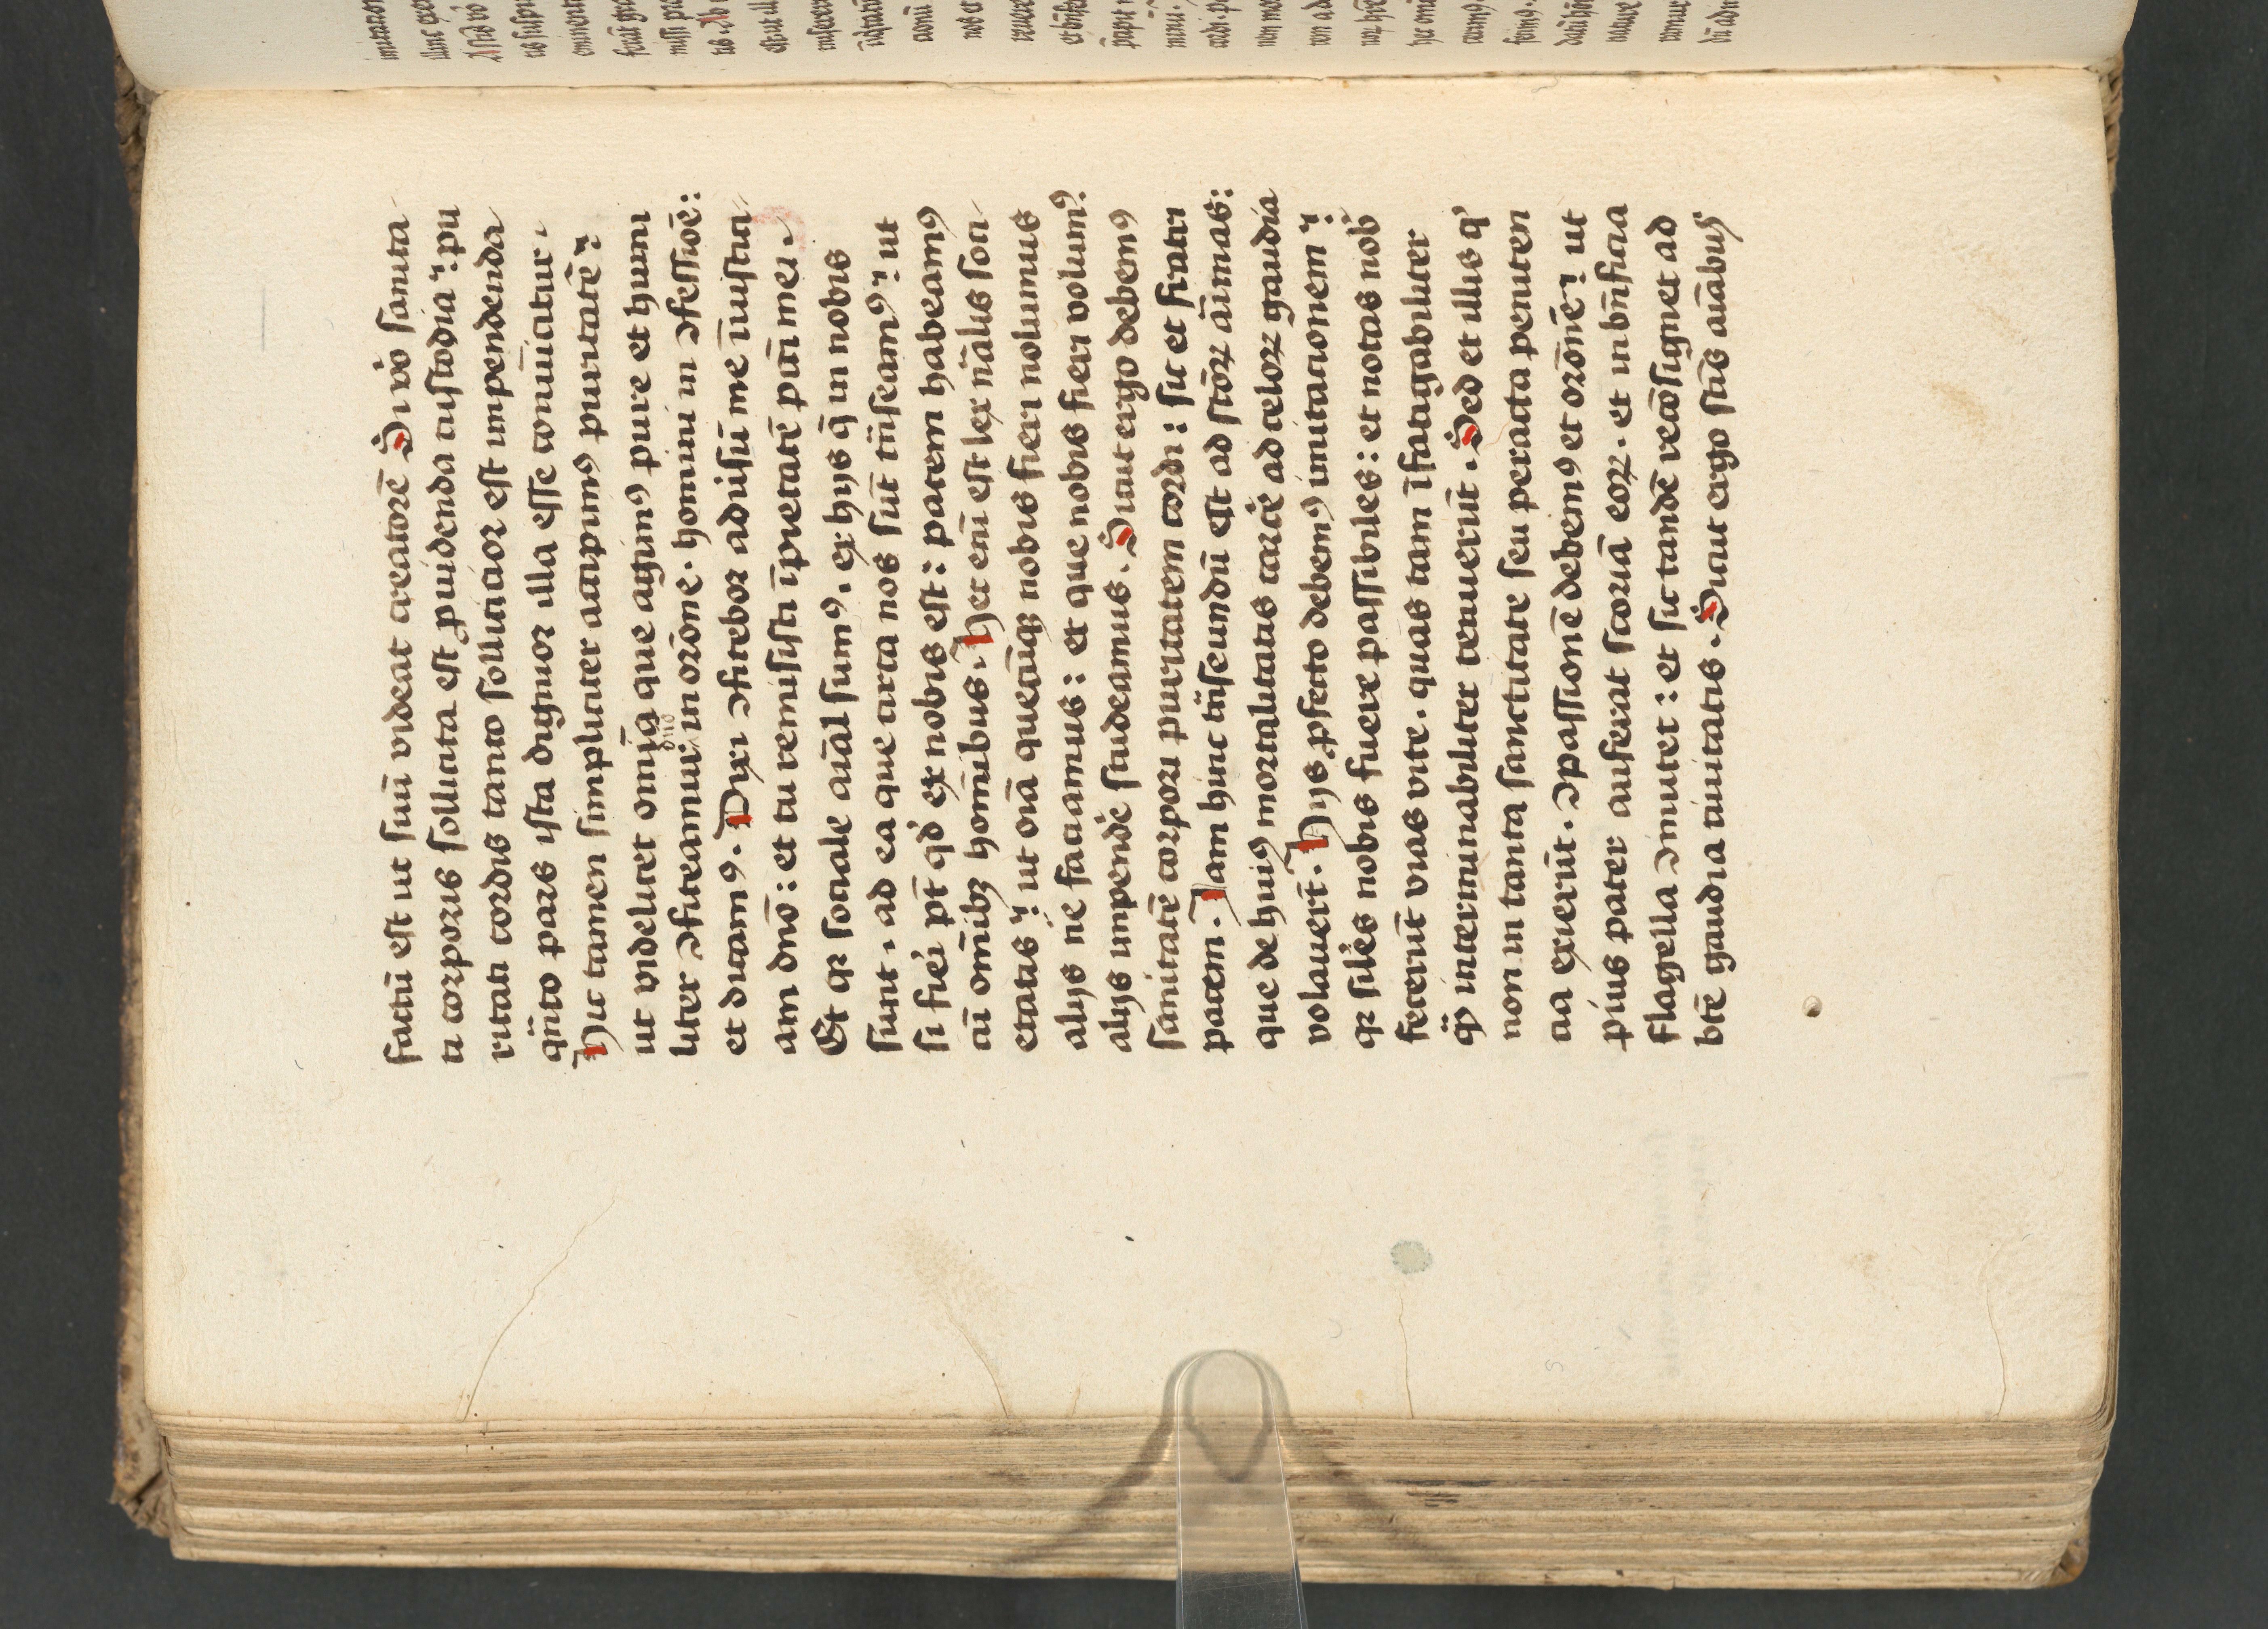 factū est ut suū videat creatorē Si v̊o sanita
ti corporis sollicita est ꝓuidenda custodia: pu
ritati cordis tanto sollicicior est impendenda
qn̄to pars ista dignior illa esse conuīcitur.
Huc tamen simpliciter accipimꝰ puritatē:
ut videlicet om̄ia que agimꝰ pure et humi
liter ꝯfiteamur dn̄o in orōne. homini in ꝯfessiōe:
et dicamꝰ. Dixi ꝯfitebor aduersū me īiustici
am dn̄o: et tu remisisti īpietatē pcc̄i mei.
Et qꝛ sociale aīal sumꝰ. ex hijs q̄ in nobis
sunt. ad ea que circa nos sūt trn̄seamꝰ: ut
si fieri pt̄ qd̕ ex nobis est: pacem habeamꝰ
cū om̄ibꝫ hom̄ibus. Hec enī est lex nālis soci
etatis: ut oīa quecūqꝫ nobis fieri nolumus
alijs ne faciamus: et que nobis fieri volumꝰ
alijs impendere studeamus. Sicut ergo debemꝰ
sanitatē corpori puritatem cordi: sic et fratri
pacem. Iam hinc trn̄seundū est ad sctōꝝ aīmas:
que de huiꝰ mortalitatis carcere ad celoꝝ gaudia
volauerūt. Hijs ꝓfecto debemꝰ imitacionem:
qꝛ siles nobis fuere passibiles: et notas nob̕
fecerūt vias vite. quas tam īfatigabiliter
qm̄ interminabiliter tenuerūt. Sed et illis q̕
non in tanta sanctitate seu peracta peniten
cia exierūt. ꝯpassionē debemꝰ et orōnē: ut
pius pater auferat scoriā eoꝝ. et in bn̄ficia
flagella ꝯmutet: et sic tandē recōsignet ad
btē gaudia ciuitatis. Sicut ergo sctīs aīabus